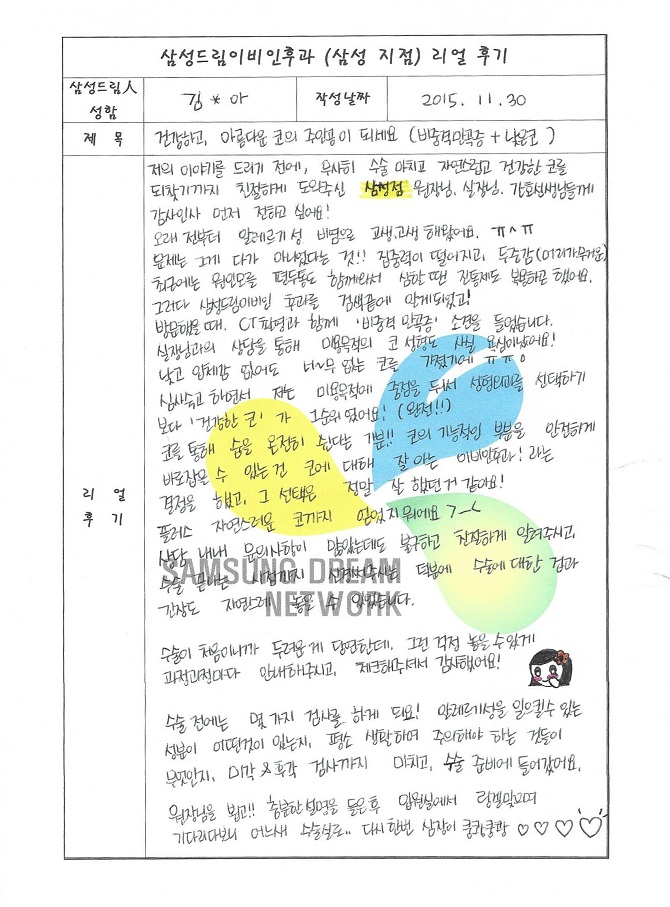 삼성드림이비인후과 (삼성 지점) 리얼 후기
삼성드림人 성함
김*아
작성날짜
2015. 11. 30
제 목
건강하고, 아름다운 코의 주인공이 되세요 (비중격만곡증 + 낮은코)
리 얼
후 기
저의 이야기를 드리기 전에, 무사히 수술 마치고 자연스럽고 건강한 코를
되찾기까지 친절하게 도와주신 삼성점 원장님, 실장님, 간호선생님들께
감사인사 먼저 전하고 싶어요!
오래 전부터 알레르기성 비염으로 고생고생 해왔어요. ㅠ^ㅠ
문제는 그게 다가 아니었다는 것!! 집중력이 떨어지고, 두중감(머리가무거운)
최근에는 원인모를 편두통도 함께와서 심한 땐 진통제도 복용하곤 했어요.
그러다 삼성드림이비인 후과를 검색끝에 알게되었고!
방문했을 때. CT촬영과 함께 '비중격 만곡증' 소견을 들었습니다.
실장님과의 상담을 통해 미용목적의 코 성형도 사실 욕심이났어요!
낮고 입체감 없어도 너~무 없는 코를 가졌기에 ㅠㅠ
심사숙고 하면서 저는 미용목적에 중점을 둬서 성형외과를 선택하기
보다 '건강한 코'가 1순위 였어요! (완전!!)
코를 통해 숨을 온전히 쉰다는 기분!! 코의 기능적인 부분을 안전하게
바로잡을 수 있는건 코에 대해 잘 아는 이비인후과! 라는
결정을 했고, 그 선택은 정말 잘 했던거 같아요!
플러스 자연스러운 코까지 얻었지뭐에요 >~<
상담 내내 문의사항이 많았는데도 불구하고 친절하게 알려주시고,
수술 끝나는 시점까지 신경써주시는 덕분에 수술에 대한 겁과
긴장도 자연스레 놓을 수 있었습니다.
SAMSUNG DREAM
NETWORK
수술이 처음이니까 두려운 게 당연한데, 그런 걱정 놓을 수 있게
과정과정마다 안내해주시고, 체크해주셔서 감사했어요!
수술 전에는 몇 가지 검사를 하게 돼요! 알레르기성을 일으킬 수 있는
성분이 어떤것이 있는지, 평소 생활하며 주의해야 하는 것들이
무엇인지, 미각 & 후각 검사까지 마치고, 수술 준비에 들어갔어요.
원장님을 뵙고!! 충분한 설명을 들은 후 입원실에서 링겔맞으며
기다리다보니 어느새 수술실로.. 다시 한번 심장이 쿵쾅쿵쾅 ♡♡♡♡